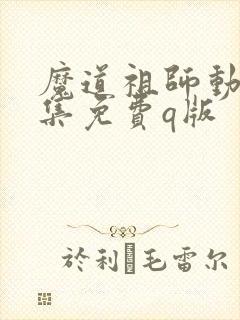 魔道祖師動
集免費q版
於利�毛雷尔